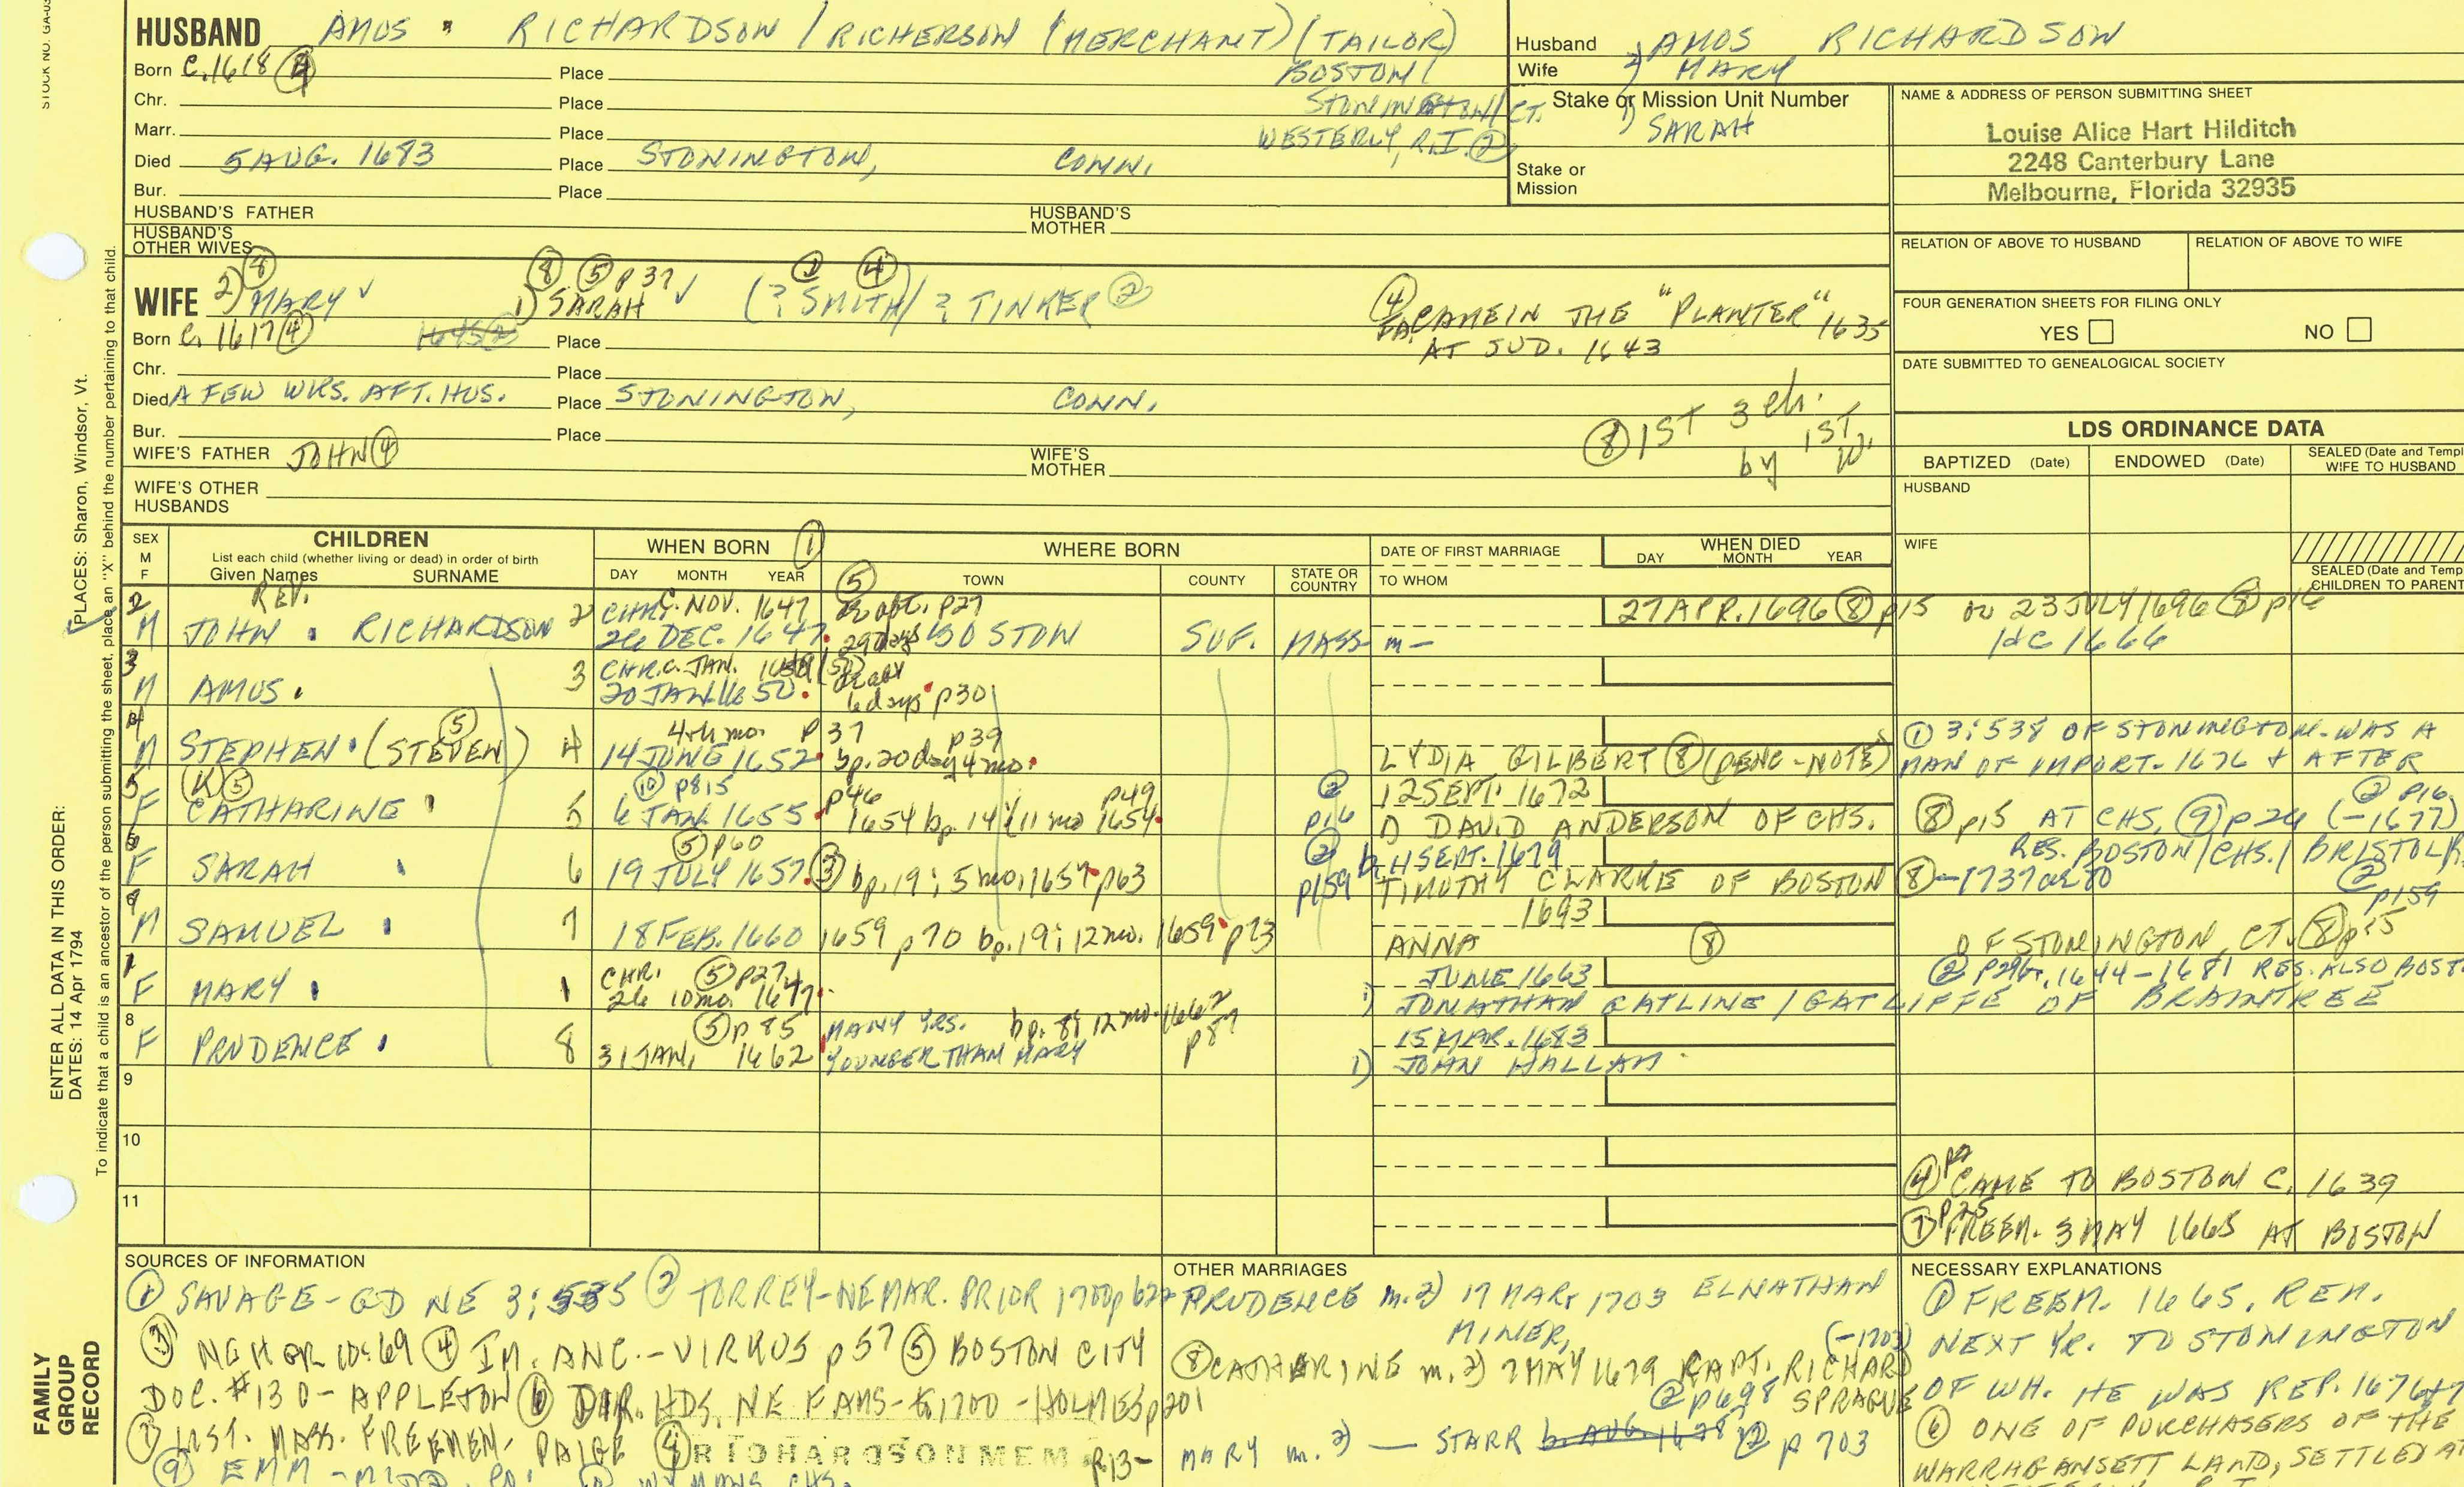 STOCK NO. GA-05
HUSBAND AMOS RICHARDSON / RICHERSON (MERCHANT) (TAILOR)
Born C. 1618 ④ Place BOSTON /
Chr. Place STONINGTON / CT.
Marr. Place WESTERLY, R.I. ②
Died 5 AUG. 1683 Place STONINGTON, CONN.
Bur. Place
HUSBAND'S FATHER HUSBAND'S MOTHER
HUSBAND'S OTHER WIVES
Husband AMOS RICHARDSON
Wife 2) MARY
Stake or Mission Unit Number
1) SARAH
Stake or Mission
NAME & ADDRESS OF PERSON SUBMITTING SHEET
Louise Alice Hart Hilditch
2248 Canterbury Lane
Melbourne, Florida 32935
RELATION OF ABOVE TO HUSBAND RELATION OF ABOVE TO WIFE
FOUR GENERATION SHEETS FOR FILING ONLY
YES NO
DATE SUBMITTED TO GENEALOGICAL SOCIETY
LDS ORDINANCE DATA
BAPTIZED (Date) ENDOWED (Date) SEALED (Date and Templ WIFE TO HUSBAND
HUSBAND
WIFE
SEALED (Date and Temp CHILDREN TO PARENT
⑧ ⑧ ⑤ p 37 ① ④
WIFE 2) MARY ✓ 1) SARAH ✓ (? SMITH / ? TINKER ②
④ CAME IN THE "PLANTER" 1635
AT JUD. 1643
Born C. 1617 ④ Place
Chr. Place
Died A FEW WKS. AFT. HUS. Place STONINGTON, CONN.
Bur. Place
⑧ 1ST 3 ch. by 1ST W.
WIFE'S FATHER JOHN ④ WIFE'S MOTHER
WIFE'S OTHER HUSBANDS
SEX M F
CHILDREN
List each child (whether living or dead) in order of birth
Given Names SURNAME
WHEN BORN ①
DAY MONTH YEAR
WHERE BORN
⑤ TOWN COUNTY STATE OR COUNTRY
DATE OF FIRST MARRIAGE
TO WHOM
WHEN DIED
DAY MONTH YEAR
2 REV. CHR. C. NOV. 1647 p27 27 APR. 1696 ⑧ p15 or 23 JULY 1696 ⑧ p16
M JOHN RICHARDSON 2 26 DEC. 1647 29 days BOSTON SUF. MASS m— 1dc 1666
3 CHR. C. JAN.
M AMOS 3 20 JAN. 1650 6 days p30
4 ⑤ 4th mo. p37 p39
M STEPHEN (STEVEN) 4 14 JUNE 1652 bp. 20 day 4 mo. LYDIA GILBERT ⑧ (PENC-NOTE)
① 3:538 OF STONINGTON-WAS A
MAN OF IMPORT. 1676 & AFTER
5 (K) ⑤ ⑩ p815 p46 p49 ② 12 SEPT. 1672 ② p16
F CATHARINE 5 6 JAN. 1655 1654 bp. 14 (11 mo 1654 p16 DAVID ANDERSON OF CHS. ⑧ p15 AT CHS. ⑨ p26 (-1677)
6 ⑤ p60 ② SEPT. 1679 RES. BOSTON/CHS./BRISTOL R
F SARAH 6 19 JULY 1657 ③ bp. 19; 5 mo, 1657 p63 p159 TIMOTHY CLARKE OF BOSTON ⑧ -1737 ae 80 ② p159
M SAMUEL 7 18 FEB. 1660 1659 p70 bp. 19; 12 mo. 1659 p73 1693 ANNA ⑧ OF STONINGTON, CT. ⑧ p15
1 CHR. ⑤ p27 JUNE 1663 1644-1681 RES. ALSO BOST
F MARY 1 26 10 mo. 1647 1) JONATHAN GATLINE / GATLIFFE OF BRAINTREE
8 ⑤ p85 MANY YRS. bp. 8; 12 mo. 1662 p87 15 MAR. 1683
F PRUDENCE 8 31 JAN. 1662 YOUNGER THAN MARY 1) JOHN HALLAM
9
10
11
④ CAME TO BOSTON C. 1639
⑦ p25 FREEM. 3 MAY 1665 AT BOSTON
PLACES: Sharon, Windsor, Vt.
ENTER ALL DATA IN THIS ORDER:
DATES: 14 Apr 1794
To indicate that a child is an ancestor of the person submitting the sheet, place an "X" behind the number pertaining to that child.
FAMILY GROUP RECORD
SOURCES OF INFORMATION
① SAVAGE-GD NE 3:535 ② TORREY-NE MAR. PRIOR 1700 p 622
③ NGH&R 10:69 ④ IM. ANC.-VIRKUS p 57 ⑤ BOSTON CITY
DOC. #130-APPLETON ⑥ DIR. HDS. NE FAMS-1700-HOLMES p 201
⑦ LIST. MASS. FREEMEN-PAIGE ⑧ RICHARDSON MEM p.13-
⑨ EMM-MIDD. CO. ⑩ WYMANS CHS.
OTHER MARRIAGES
PRUDENCE m. 2) 17 MAR. 1703 ELNATHAN
MINER,
⑧ CATHARINE m. 2) 7 MAY 1679 CAPT. RICHARD (-1703)
② p 698 SPRAGUE
MARY m. 2) — STARR ② p 703
NECESSARY EXPLANATIONS
① FREEM. 1665, REM.
NEXT YR. TO STONINGTON
OF WH. HE WAS REP. 1676+7
⑥ ONE OF PURCHASERS OF THE
NARRAGANSETT LAND, SETTLED AT